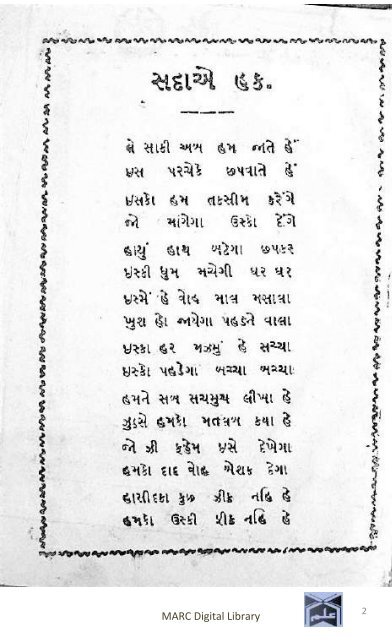 સદાએ હક.
લે સાકી અબ હમ જાતે હેં
ઇસ પરચેકે છપવાતે હેં
ઇસકો હમ તકસીમ કરેંગે
જો માંગેગા ઉસ્કો દેંગે
હાથું હાથ બટેગા છપકર
ઇસ્કી ધુમ મચેગી ઘર ઘર
ઇસ્મેં હે વોહ માલ મસાલા
ખુશ હો જાયેગા પહડને વાલા
ઇસ્કા હર મઝમું હે સચ્ચા
ઇસ્કો પહડેગા બચ્ચા બચ્ચા
હમને સબ સચમુચ લીખા હે
ઝુઠસે હમકો મતલબ કયા હે
જો ઝી ફહેમ ઇસે દેખેગા
હમકો દાદ વોહ બેશક દેગા
હાસીદકા કુછ ઝીક્ર નહિ હે
હમકો ઉસ્કી ફીક્ર નહિ હે
MARC Digital Library
علم
2